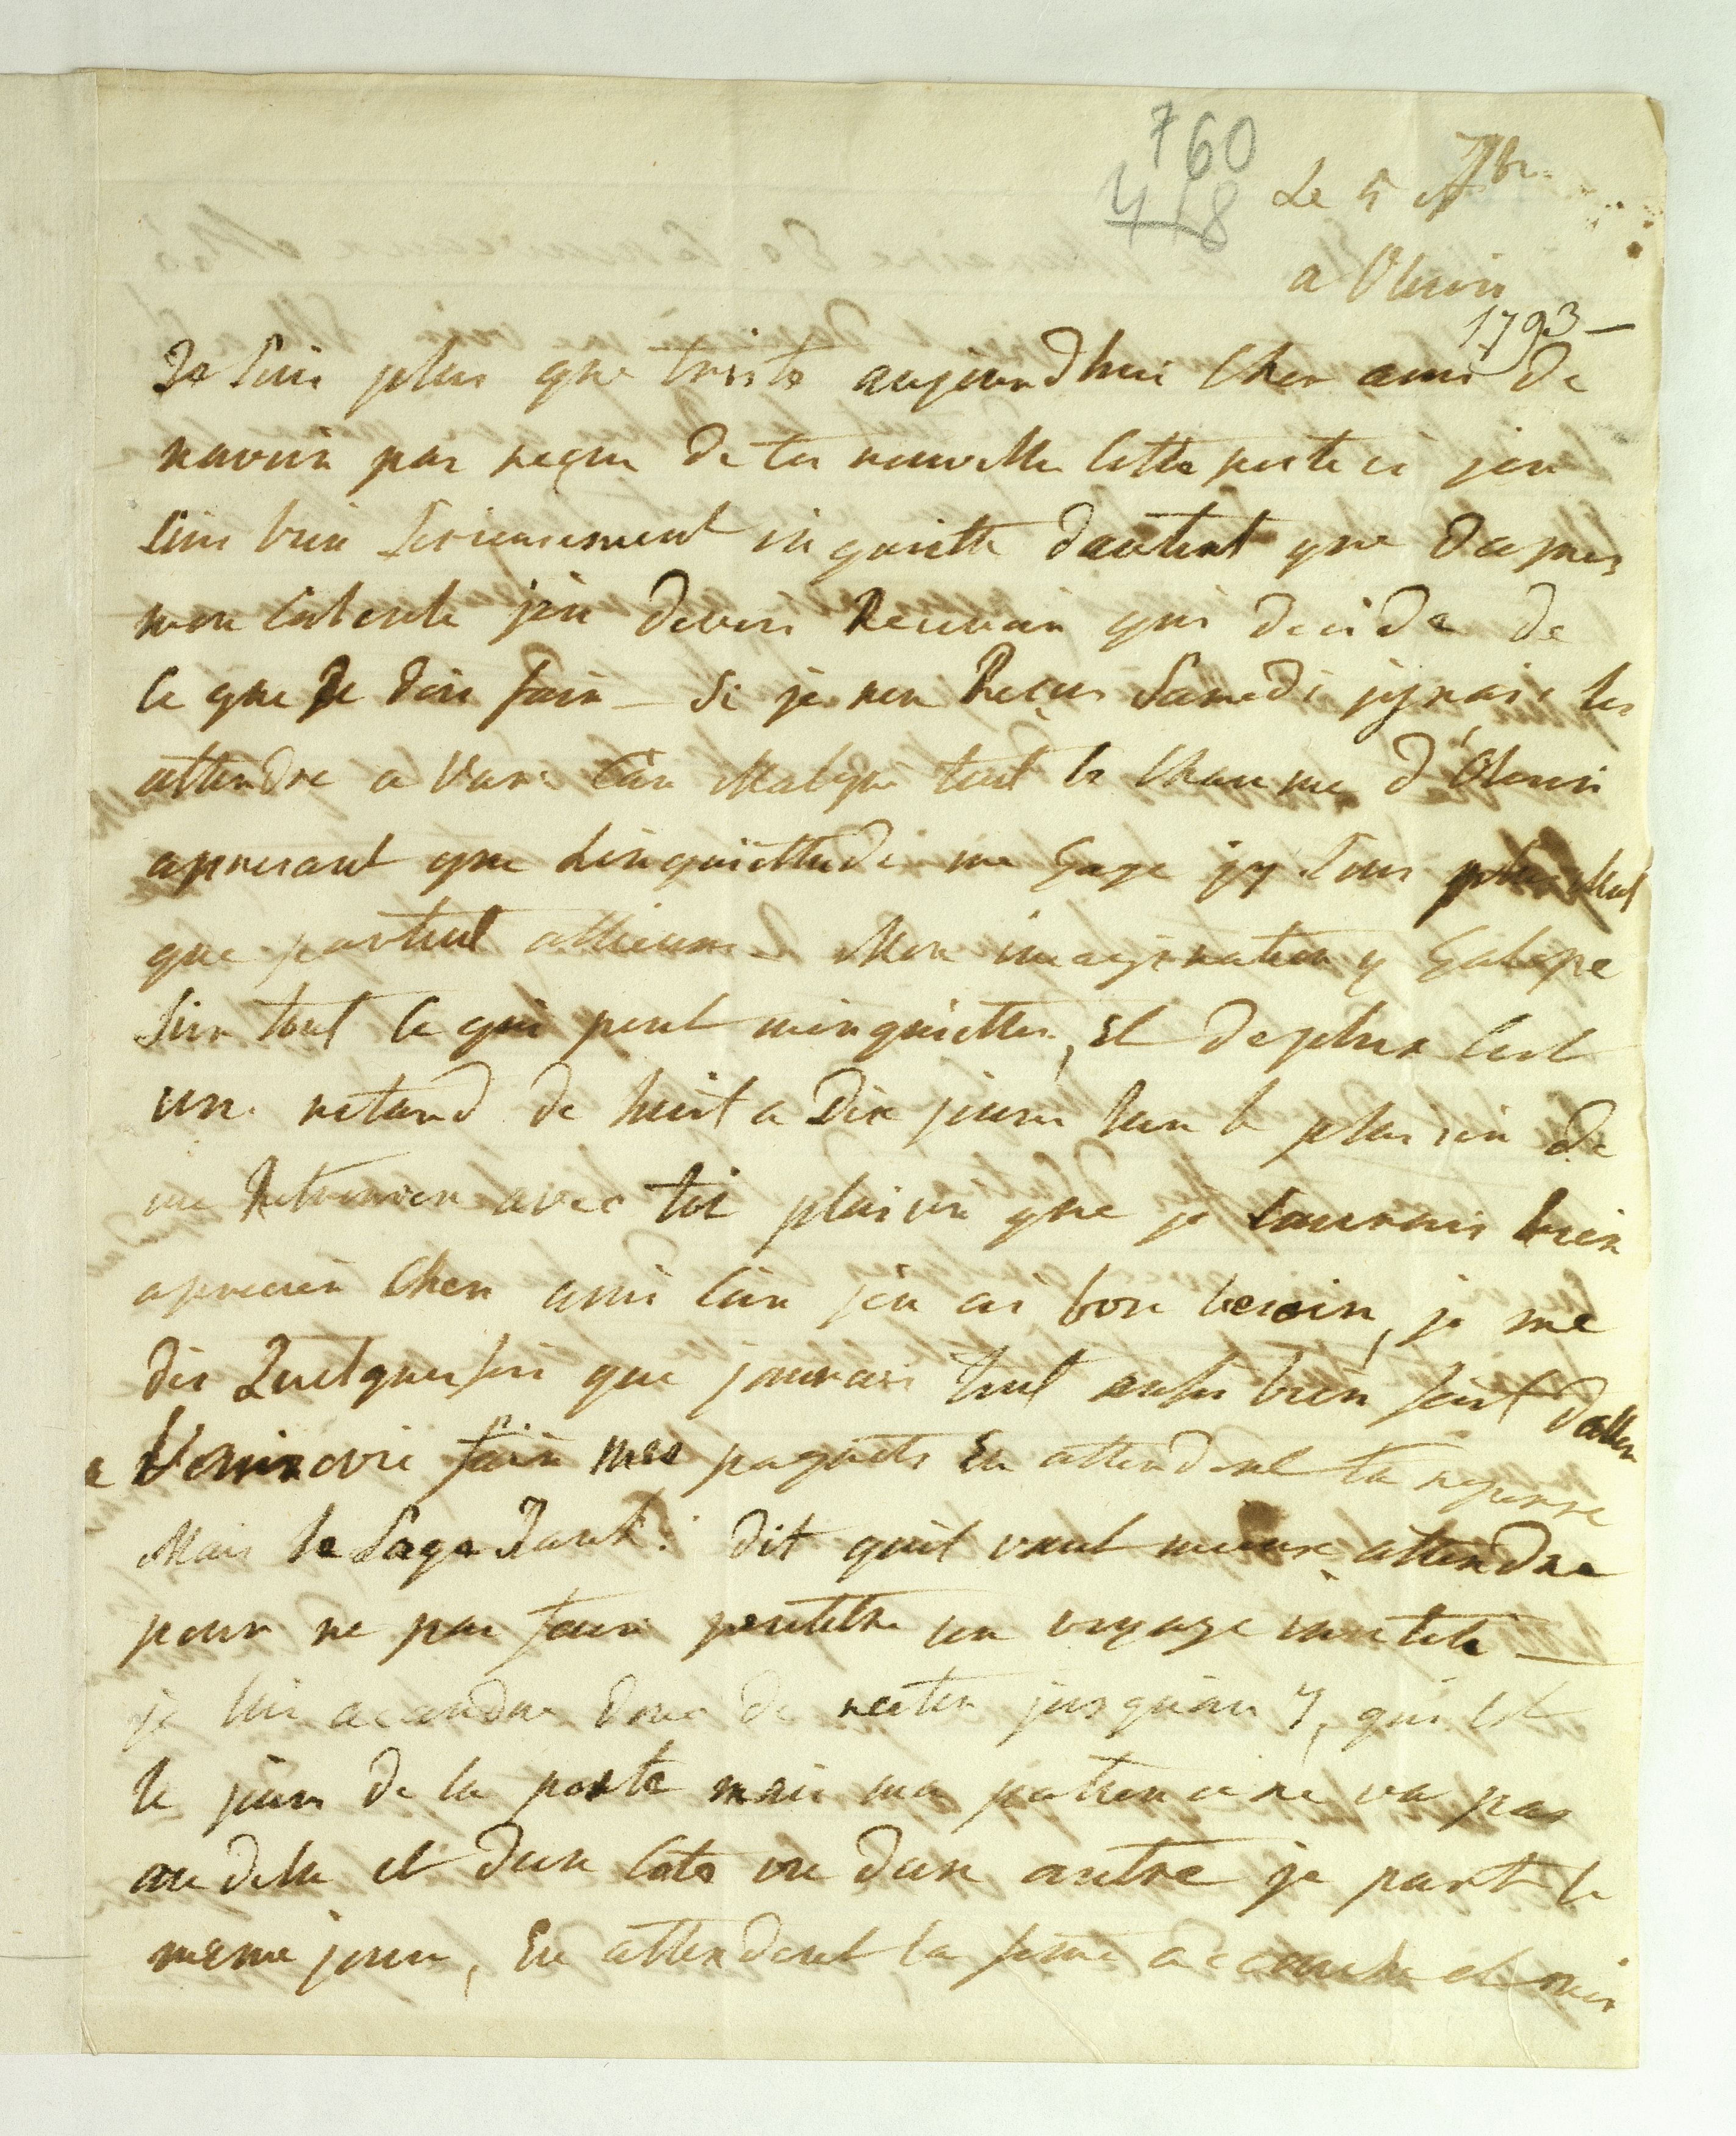 760
418
Le 5 7br.
a Olesin
1793 —
Je suis plus que triste aujourdhui Cher ami de
navoir pas reçue de tes nouvelle cette poste ci jen
suis bien serieusement inquiette dautent que dapres
mon calcule jen devois Recevoir qui decide de
ce que je dois fair — si je nen Reçus Samedi jyrais les
attendre a Vars. Car Malgré tout le charme d'Olesin
apresant que linquiettude me gage jy suis plus Mal
que partout allieurs — Mon imagination y Galope
sur tout ce qui peut minquietter, Et deplus cest
un retard de huit a Dix jours sur le plaisir de
me Retrouver avec toi plaisir que je saurais bien
aprecier Cher ami car jen ai bon besoin, je me
dis Quelquesfois que jaurais tout aussi bien fait daller
a fair mes paquets En attendent ta reponse
Mais le Sage dit quil vaut mieux attendre
pour ne pas faire peutetre un voyage inutile —
je lui donc de rester jusquau 7, qui est
le jour de la poste mais ma patience ne va pas
au dela et dun coté ou dun autre je part le
meme jour, En attendent la feme accouche et moi